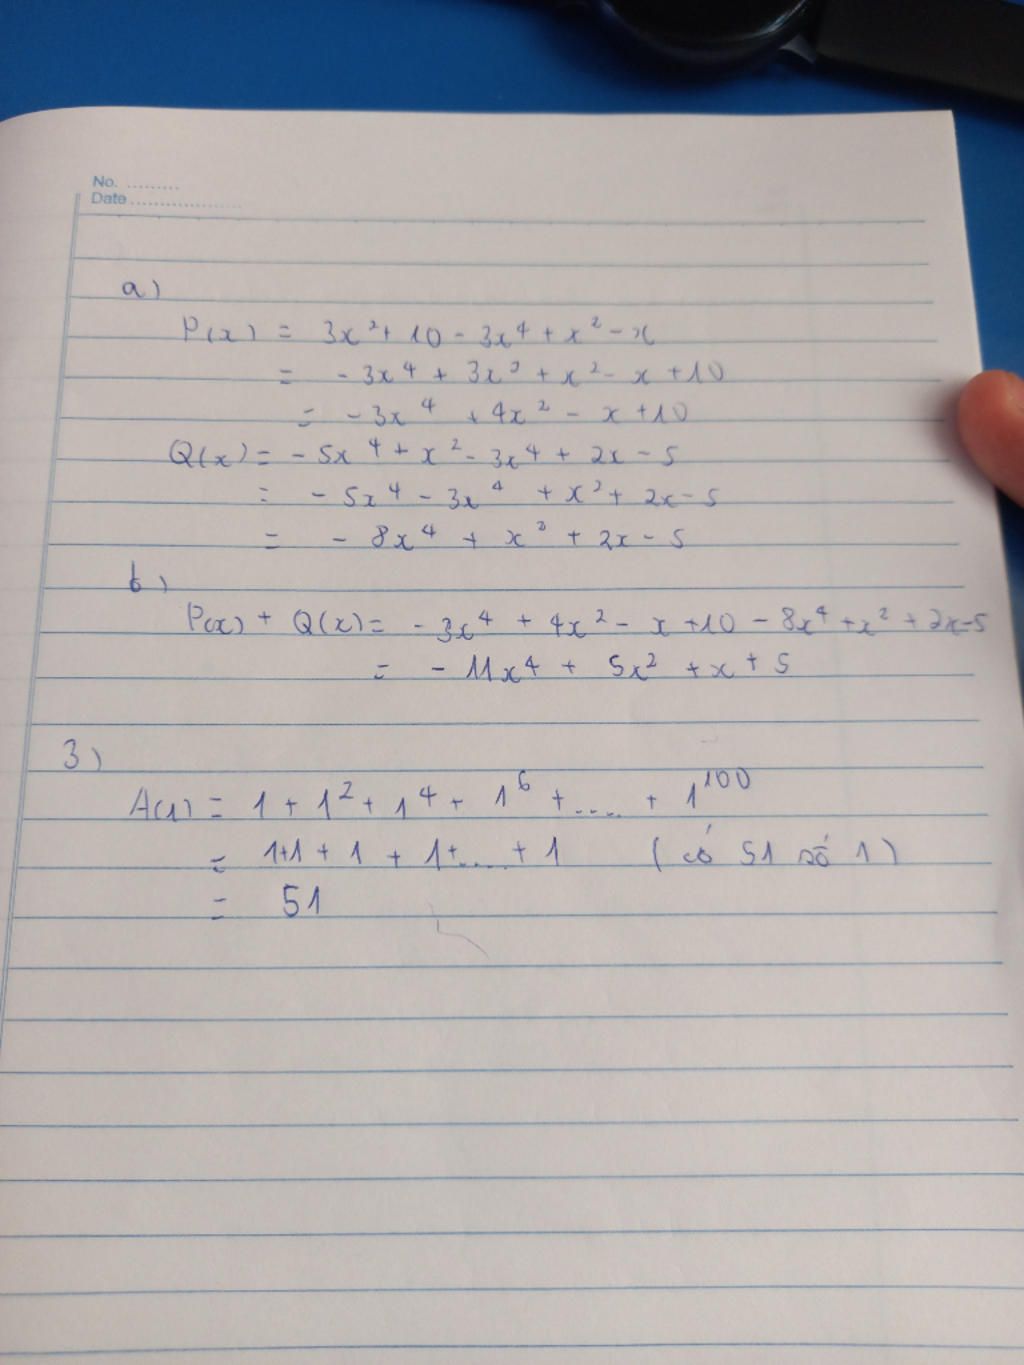 No. .........
Date ...................
a)
P(x) = 3x² + 10 - 3x⁴ + x² - x
= - 3x⁴ + 3x² + x² - x + 10
= - 3x⁴ + 4x² - x + 10
Q(x) = - 5x⁴ + x² - 3x⁴ + 2x - 5
= - 5x⁴ - 3x⁴ + x² + 2x - 5
= - 8x⁴ + x² + 2x - 5
b)
P(x) + Q(x) = - 3x⁴ + 4x² - x + 10 - 8x⁴ + x² + 2x - 5
= - 11x⁴ + 5x² + x + 5
3)
A(1) = 1 + 1² + 1⁴ + 1⁶ + ..... + 1¹⁰⁰
= 1+1 + 1 + 1+.... + 1 (có 51 số 1)
= 51